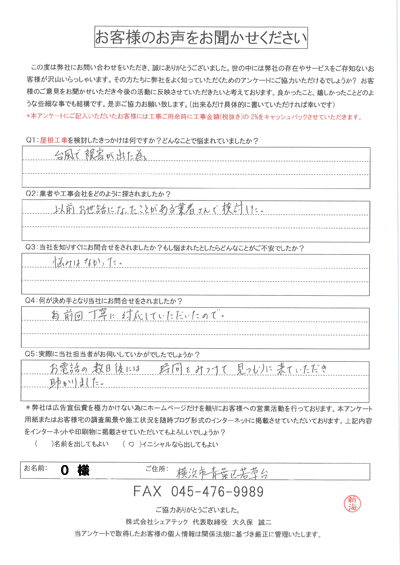 お客様のお声をお聞かせください
この度は弊社にお問い合わせをいただき、誠にありがとうございました。世の中には弊社の存在やサービスをご存知ないお
客様が沢山いらっしゃいます。その方たちに弊社をよく知っていただくためのアンケートにご協力いただけるでしょうか？ お客
様のご意見をお聞かせいただき今後の活動に反映させていただきたいと考えております。良かったこと、嬉しかったことどのよ
うな些細な事でも結構です。是非ご協力お願い致します。（出来るだけ具体的に書いていただければ幸いです）
*本アンケートにご記入いただいたお客様には工事ご用命時に工事金額(税抜き)の 2%をキャッシュバックさせていただきます。
Q1：屋根工事を検討したきっかけは何ですか？どんなことで悩まれていましたか？
台風で被害が出た為
Q2：業者や工事会社をどのように探されましたか？
以前お世話になったことがある業者さんで検討した。
Q3：当社を知りすぐにお問合せをされましたか？もし悩まれたとしたらどんなことがご不安でしたか？
悩みはなかった。
Q4：何が決め手となり当社にお問合せをされましたか？
前回丁寧に対応していただいたので。
Q5：実際に当社担当者がお伺いしていかがでしたでしょうか？
お電話の数日後には 時間をみつけて見つもりに来ていただき
助かりました。
*弊社は広告宣伝費を極力かけない為にホームページだけを頼りにお客様への営業活動を行っております。本アンケート
用紙またはお客様宅の調査風景や施工状況を随時ブログ形式のインターネットに掲載させていただいております。上記内容
をインターネットや印刷物に掲載させていただいてもよろしいでしょうか？
（ ）名前を出してもよい （○）イニシャルなら出してもよい
お名前： O 様 ご住所： 横浜市青葉区若草台
FAX 045-476-9989
ご協力ありがとうございました。
株式会社シェアテック 代表取締役 大久保 誠二
当アンケートで取得したお客様の個人情報は関係法規に基づき厳正に管理いたします。